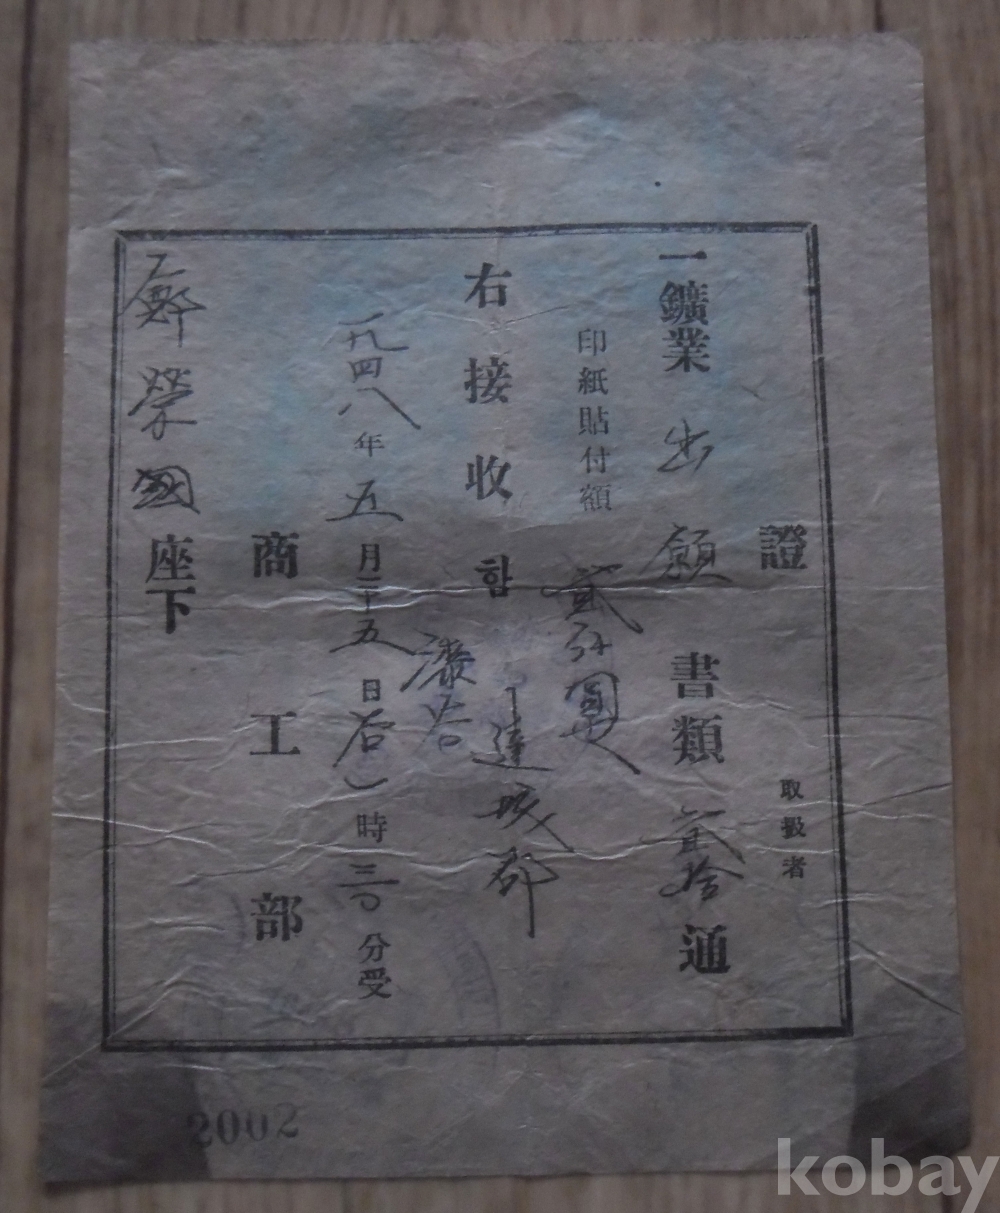 證
取扱者
一鑛業出願書類貳拾通
印紙貼付額
右接收함
達城郡
一九四八年五月二十五日后一時三〇分受
商工部
鄭榮國座下
2002
kobay